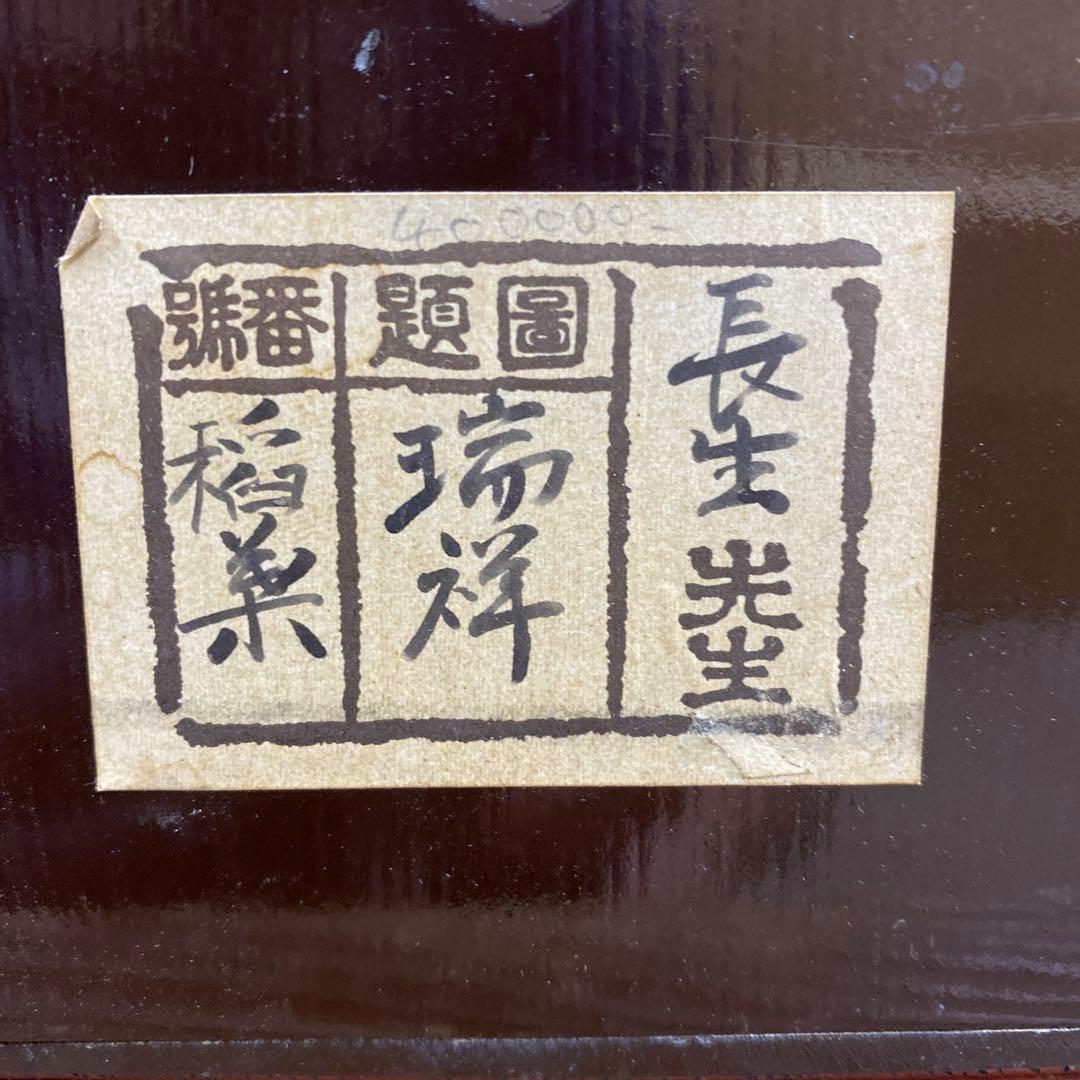 400000-
長生先生
圖題
瑞祥
番號
稻葉